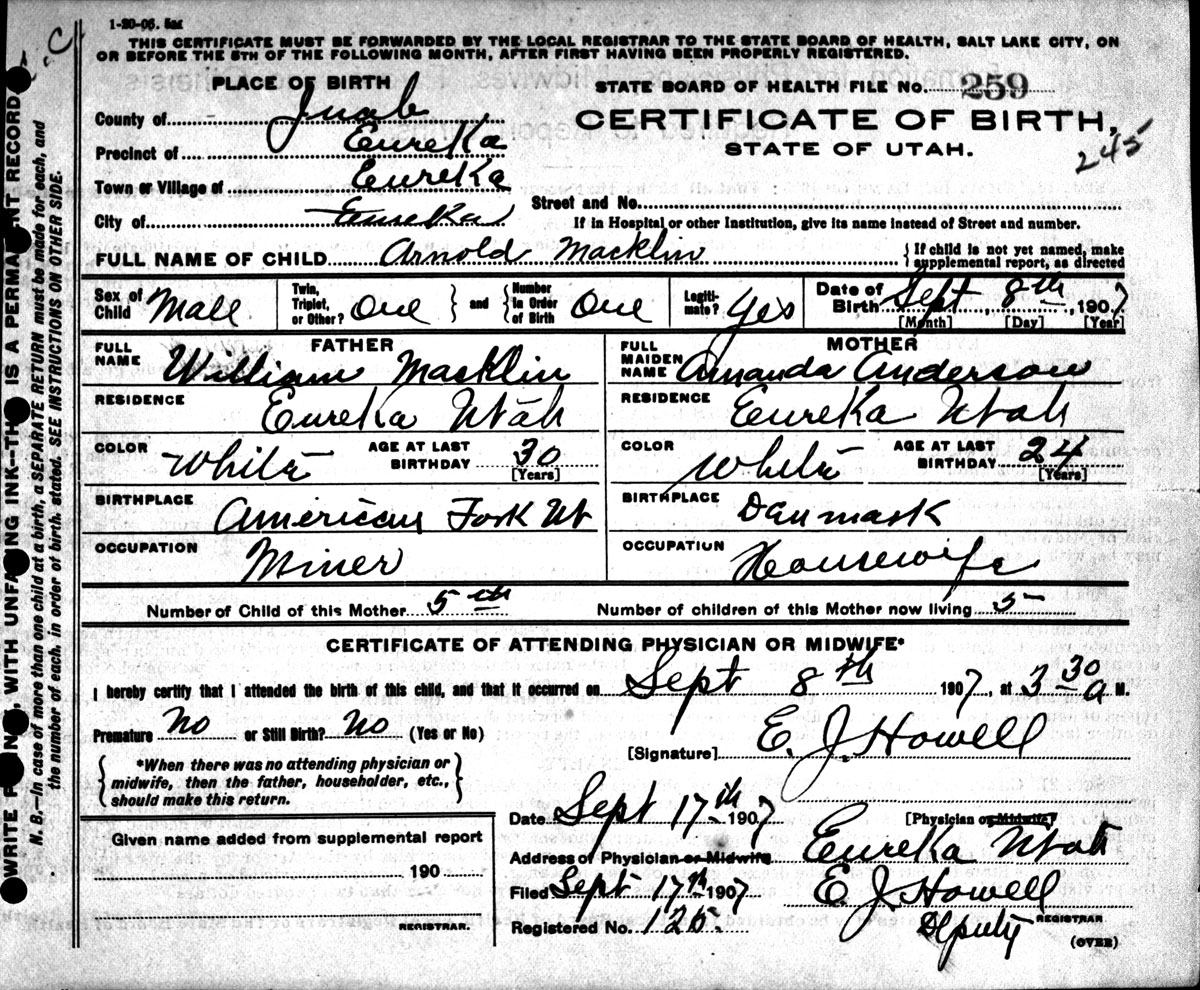 1-20-06. 5M
THIS CERTIFICATE MUST BE FORWARDED BY THE LOCAL REGISTRAR TO THE STATE BOARD OF HEALTH, SALT LAKE CITY, ON
OR BEFORE THE 5TH OF THE FOLLOWING MONTH, AFTER FIRST HAVING BEEN PROPERLY REGISTERED.
PLACE OF BIRTH
STATE BOARD OF HEALTH FILE NO. 259
County of Juab
CERTIFICATE OF BIRTH,
Precinct of Eureka
STATE OF UTAH.
245
Town or Village of Eureka
Street and No.
City of Eureka
If in Hospital or other Institution, give its name instead of Street and number.
FULL NAME OF CHILD Arnold Macklin { If child is not yet named, make supplemental report, as directed
Sex of Child Male
Twin, Triplet, or Other? One } and { Number in Order of Birth One
Legitimate? Yes
Date of Birth Sept 8th, 1907
[Month] [Day] [Year]
FATHER
FULL NAME William Macklin
RESIDENCE Eureka Utah
COLOR White AGE AT LAST BIRTHDAY 30 [Years]
BIRTHPLACE American Fork Ut
OCCUPATION Miner
MOTHER
FULL MAIDEN NAME Amanda Anderson
RESIDENCE Eureka Utah
COLOR White AGE AT LAST BIRTHDAY 24 [Years]
BIRTHPLACE Danmark
OCCUPATION Housewife
Number of Child of this Mother 5th Number of children of this Mother now living 5
CERTIFICATE OF ATTENDING PHYSICIAN OR MIDWIFE*
I hereby certify that I attended the birth of this child, and that it occurred on Sept 8th 1907, at 3 30 a M.
Premature No or Still Birth? No (Yes or No)
[Signature] E. J. Howell
{ *When there was no attending physician or midwife, then the father, householder, etc., should make this return. }
Date Sept 17th 1907
[Physician or Midwife]
Given name added from supplemental report
190
REGISTRAR.
Address of Physician or Midwife Eureka Utah
Filed Sept 17th 1907 E J Howell
Registered No. 125. Deputy REGISTRAR
(OVER)
WRITE PLAINLY, WITH UNFADING INK--THIS IS A PERMANENT RECORD
N. B.--In case of more than one child at a birth, a SEPARATE RETURN must be made for each, and
the number of each, in order of birth, stated. SEE INSTRUCTIONS ON OTHER SIDE.